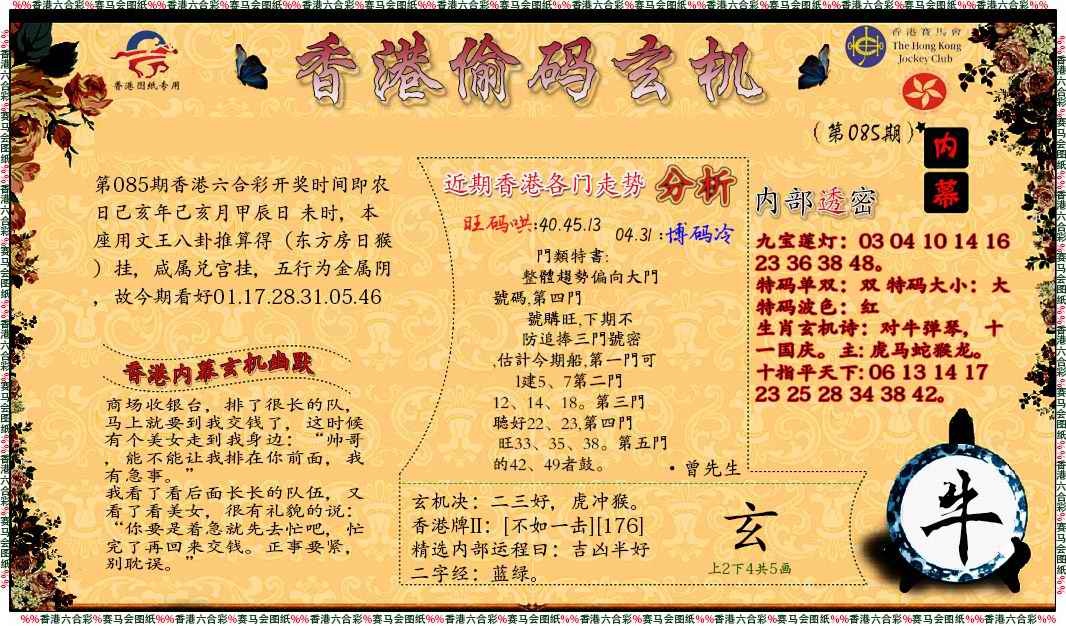 %%香港六合彩%赛马会图纸%%香港六合彩%赛马会图纸%%香港六合彩%赛马会图纸%%香港六合彩%赛马会图纸%%香港六合彩%赛马会图纸%%香港六合彩%赛马会图纸%%香港六合彩%%
香港图纸专用
香港偷码玄机
香港賽馬會
The Hong Kong
Jockey Club
(第085期)
内
幕
第085期香港六合彩开奖时间即农
日己亥年己亥月甲辰日 未时，本
座用文王八卦推算得（东方房日猴
）挂，咸属兑宫挂，五行为金属阴
，故今期看好01.17.28.31.05.46
香港内幕玄机幽默
商场收银台，排了很长的队，
马上就要到我交钱了，这时候
有个美女走到我身边：“帅哥
，能不能让我排在你前面，我
有急事。”
我看了看后面长长的队伍，又
看了看美女，很有礼貌的说：
“你要是着急就先去忙吧，忙
完了再回来交钱。正事要紧，
别耽误。”
近期香港各门走势 分析
旺码哄:40.45.13
04.31 :博码冷
門類特書:
整體趨勢偏向大門
號碼,第四門
號購旺,下期不
防追捧三門號密
,估計今期船,第一門可
1建5、7第二門
12、14、18。第三門
聽好22、23,第四門
旺33、35、38。第五門
的42、49者鼓。
·曾先生
玄机决：二三好，虎冲猴。
香港牌II：[不如一击][176]
精选内部运程曰：吉凶半好
二字经：蓝绿。
玄
上2下4共5画
内部透密
九宝莲灯：03 04 10 14 16
23 36 38 48。
特码单双：双 特码大小：大
特码波色：红
生肖玄机诗：对牛弹琴，十
一国庆。主: 虎马蛇猴龙。
十指平天下: 06 13 14 17
23 25 28 34 38 42。
牛
%%香港六合彩%赛马会图纸%%香港六合彩%赛马会图纸%%香港六合彩%赛马会图纸%%香港六合彩%赛马会图纸%%香港六合彩%赛马会图纸%%香港六合彩%赛马会图纸%%香港六合彩%%